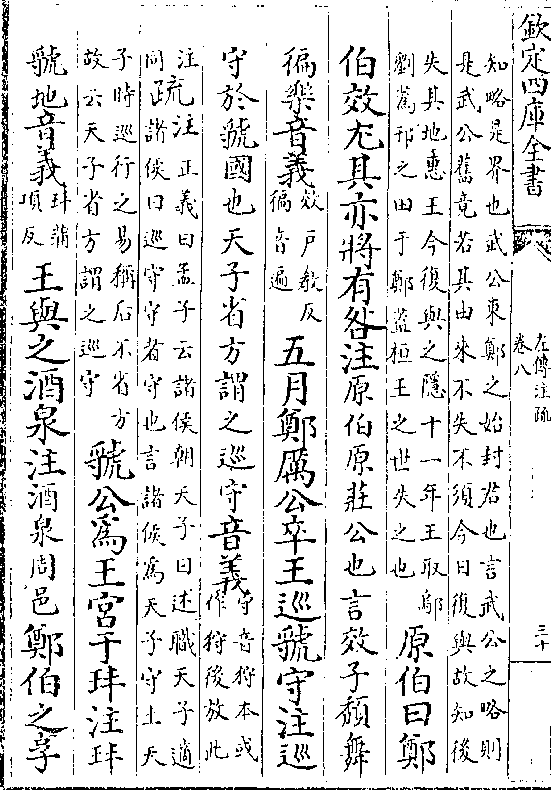 欽定四庫全書
左傳注疏
卷八
三十
知略是界也武公東鄭之始封君也言武公之略則
是武公舊竟若其由來不失不須今日復與故知後
失其地惠王今復與之隱十一年王取鄔
劉蒍邘之田于鄭蓋桓王之世失之也
原伯曰鄭
伯效尤其亦將有咎注原伯原莊公也言效子頹舞
徧樂音義
效戶教反
徧音遍
五月鄭厲公卒王巡虢守注巡
守於虢國也天子省方謂之巡守音義
守音狩本或
作狩後放此
注
同
疏
注正義曰孟子云諸侯朝天子曰述職天子適
諸侯曰巡守守者守也言諸侯為天子守土天
子時巡行之易稱后不省方
故云天子省方謂之巡守
虢公爲王宮于玤注玤
虢地音義
玤蒲
項反
王與之酒泉注酒泉周邑鄭伯之享